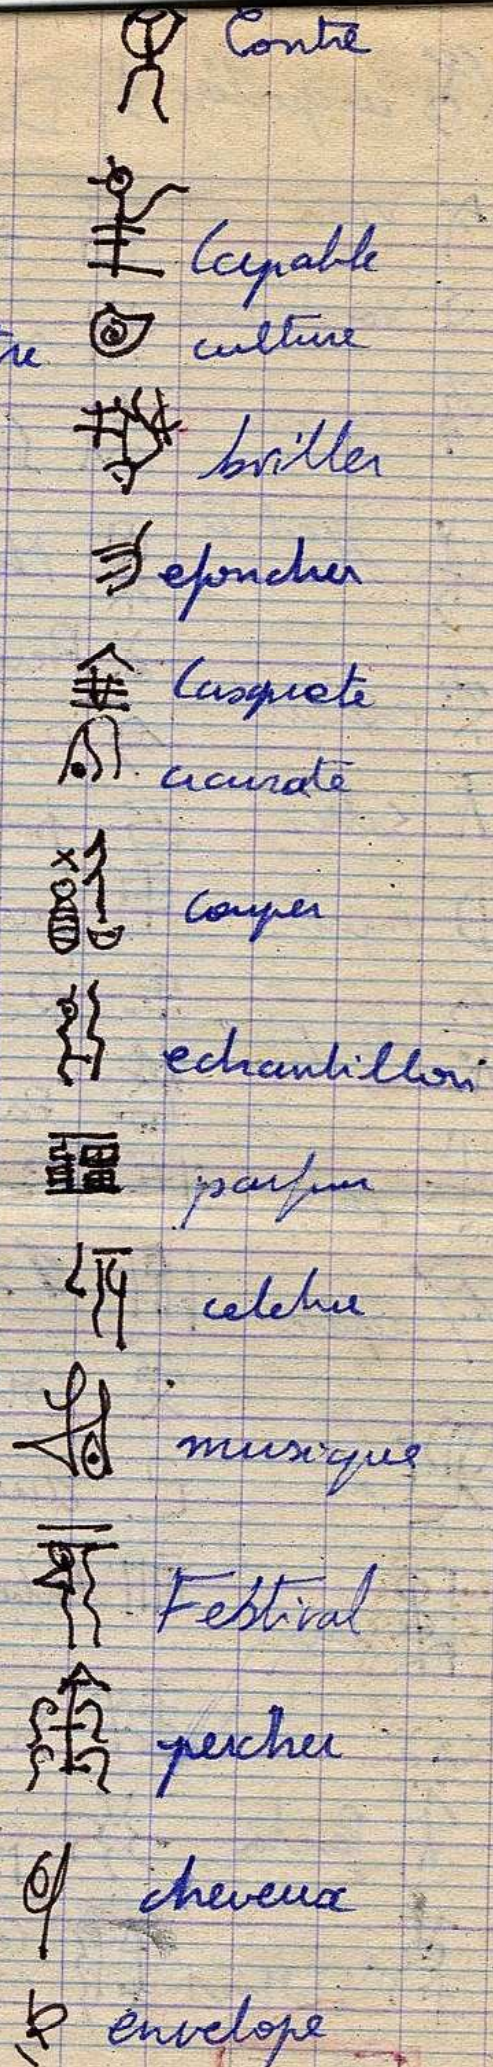 Contre
Capable
culture
re
briller
eponcher
Casquete
acurate
couper
echantillon
parfum
celebre
musique
Festival
percher
cheveux
envelope